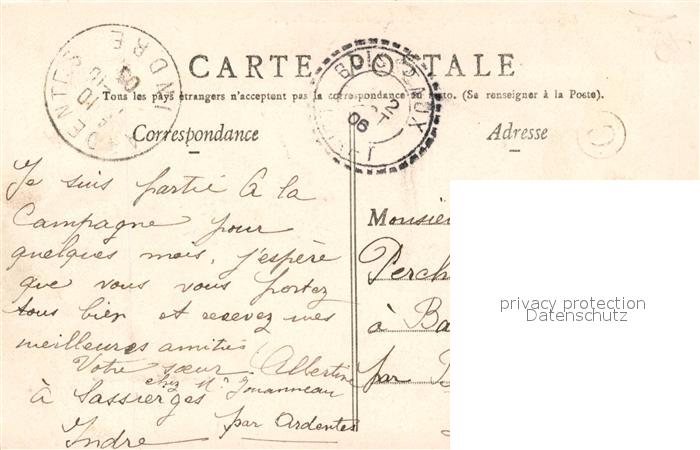 CARTE POSTALE
Tous les pays étrangers n'acceptent pas la correspondance au recto. (Se renseigner à la Poste).
Correspondance
Adresse
ARDENTES
INDRE
Je suis partie à la
Campagne pour
quelques mois, j'espère
que vous vous portez
tous bien et recevez mes
meilleures amitiés
Votre sœur Albertine
chez Mr Jouanneau
à Sassierges
par Ardentes
Indre
Monsieu
Perch
à Ba
par
privacy protection
Datenschutz